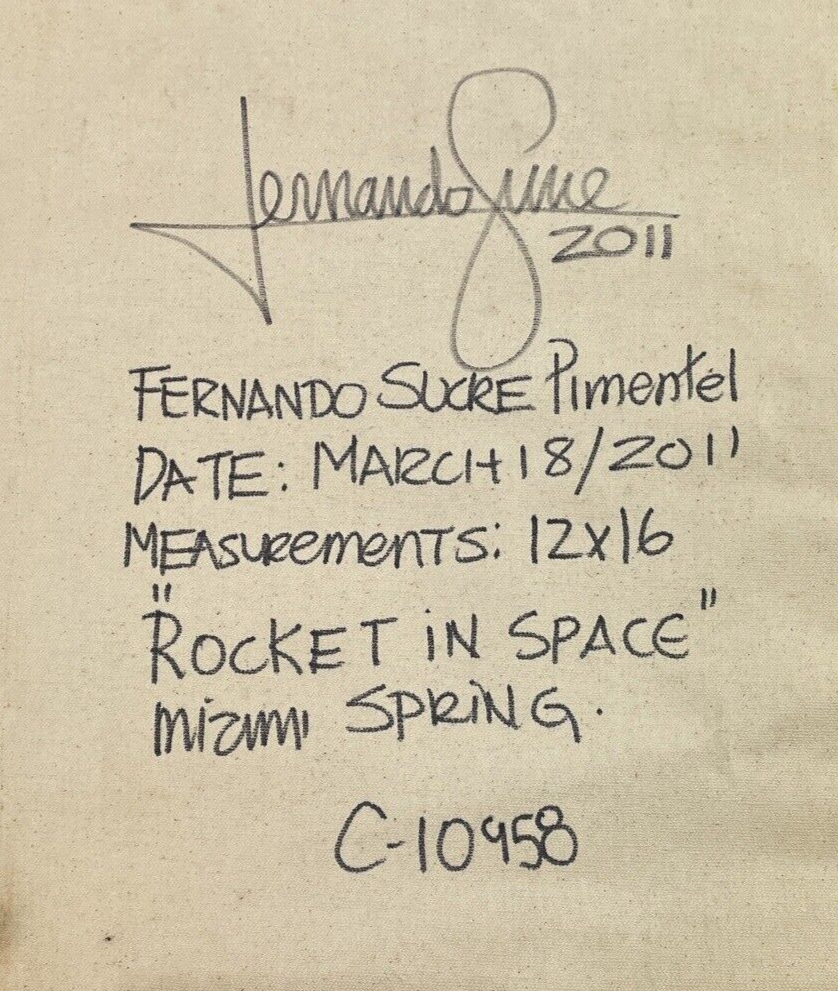 Fernando Sucre
2011
FERNANDO SUCRE Pimentel
DATE: MARCH 18/2011
MEASUREMENTS: 12x16
"ROCKET IN SPACE"
Miami SPRING.
C-10958